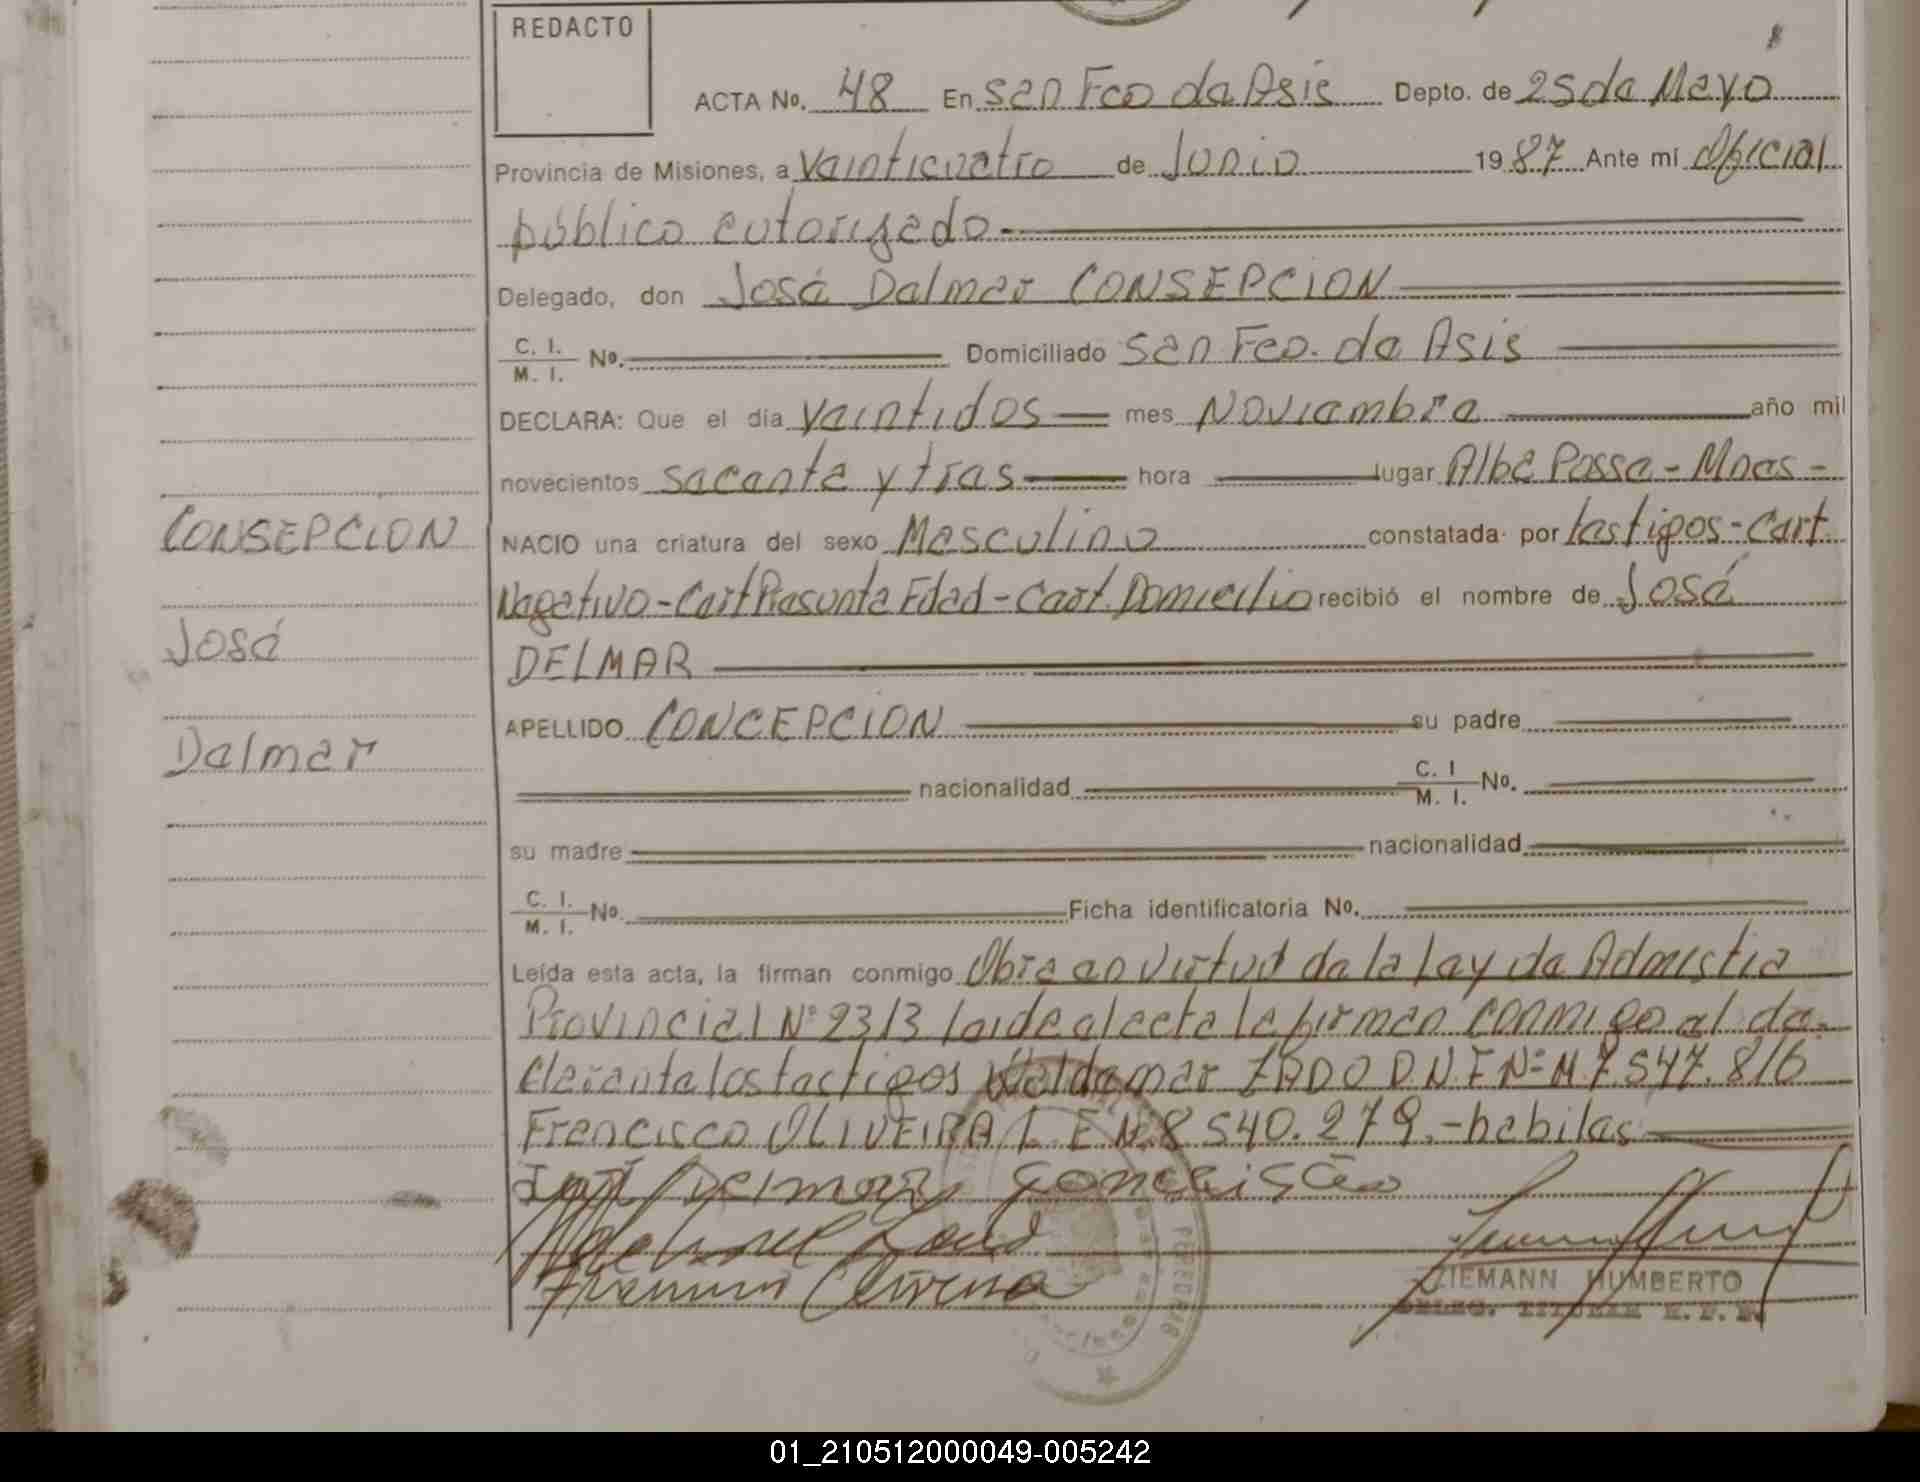 REDACTO
ACTA No. 48 En San Fco de Asis Depto. de 25 de Mayo
Provincia de Misiones, a Veinticuatro de Junio 1987 Ante mí Oficial
público autorizado.-
Delegado, don José Delmar CONSEPCION
C. I. M. I. No. Domiciliado San Fco. de Asis
DECLARA: Que el día Veintidos mes Noviembre año mil
novecientos sesenta y tres hora lugar Alba Posse - Mnes -
CONSEPCION
NACIO una criatura del sexo Masculino constatada por testigos - Cert.
Negativo - Cert Presunta Edad - Cert. Domicilio recibió el nombre de José
José
DELMAR
APELLIDO CONCEPCION su padre
Delmar
nacionalidad C. I M. I. No.
su madre nacionalidad
C. I. M. I. No. Ficha identificatoria No.
Leída esta acta, la firman conmigo Obre en virtud de la ley de Admistia
Provincial Nº 2313 leida el acta la firman conmigo el de-
clarante los testigos Waldemar ZADO D.N.I Nº M 7.547.816
Francisco OLIVEIRA L.E Nº 8 540.279.- habiles
José Delmar Conceisção
ZIEMANN HUMBERTO
DELEG. TITULAR R.P.P.
01_210512000049-005242